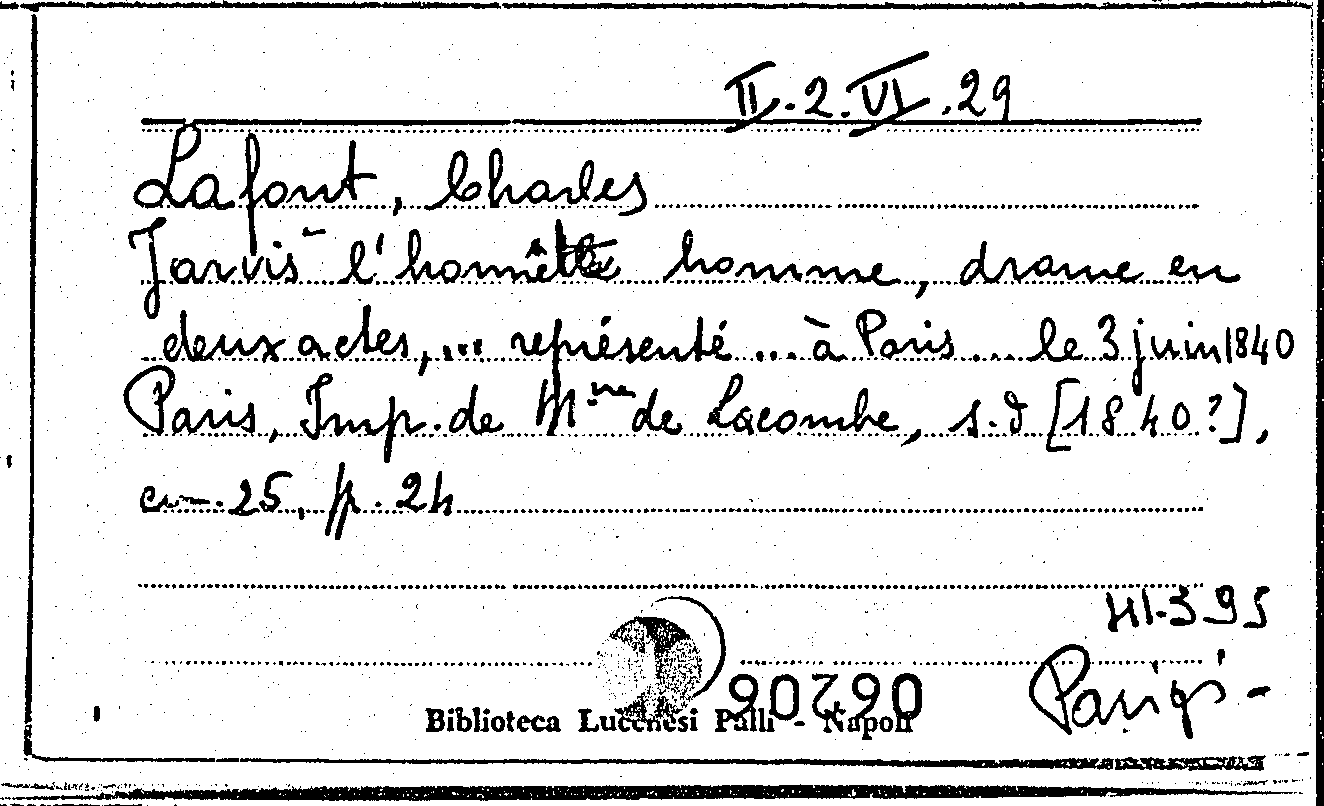 II.2.VI.29
Lafont, Charles
Jarvis l'honnête homme, drame en
deux actes,... représenté... à Paris... le 3 juin 1840
Paris, Imp. de Mme de Lacombe, s.d [1840?],
cm. 25, p. 24
HI-395
Parigi -
060790
Biblioteca Lucchesi Palli - Napoli